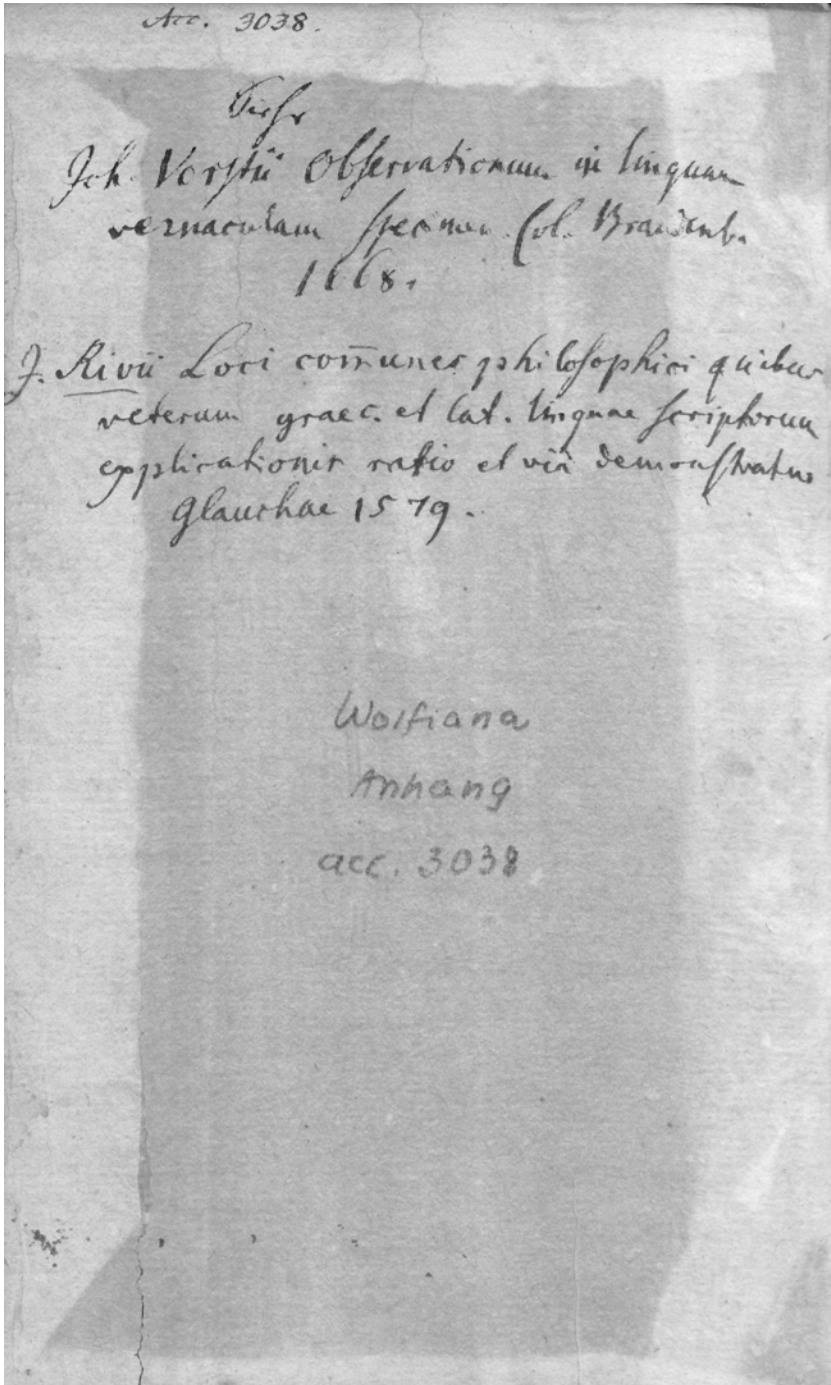 Acc. 3038.
Joh. Vorstii Observationum in linguam
vernaculam specimen. Col. Brandenb.
1668.
J. Rivii Loci com̄unes philosophici quibus
veterum graec. et lat. linguae scriptorum
explicationis ratio et via demonstratur
Glauchae 1579.
Wolfiana
Anhang
acc. 3038